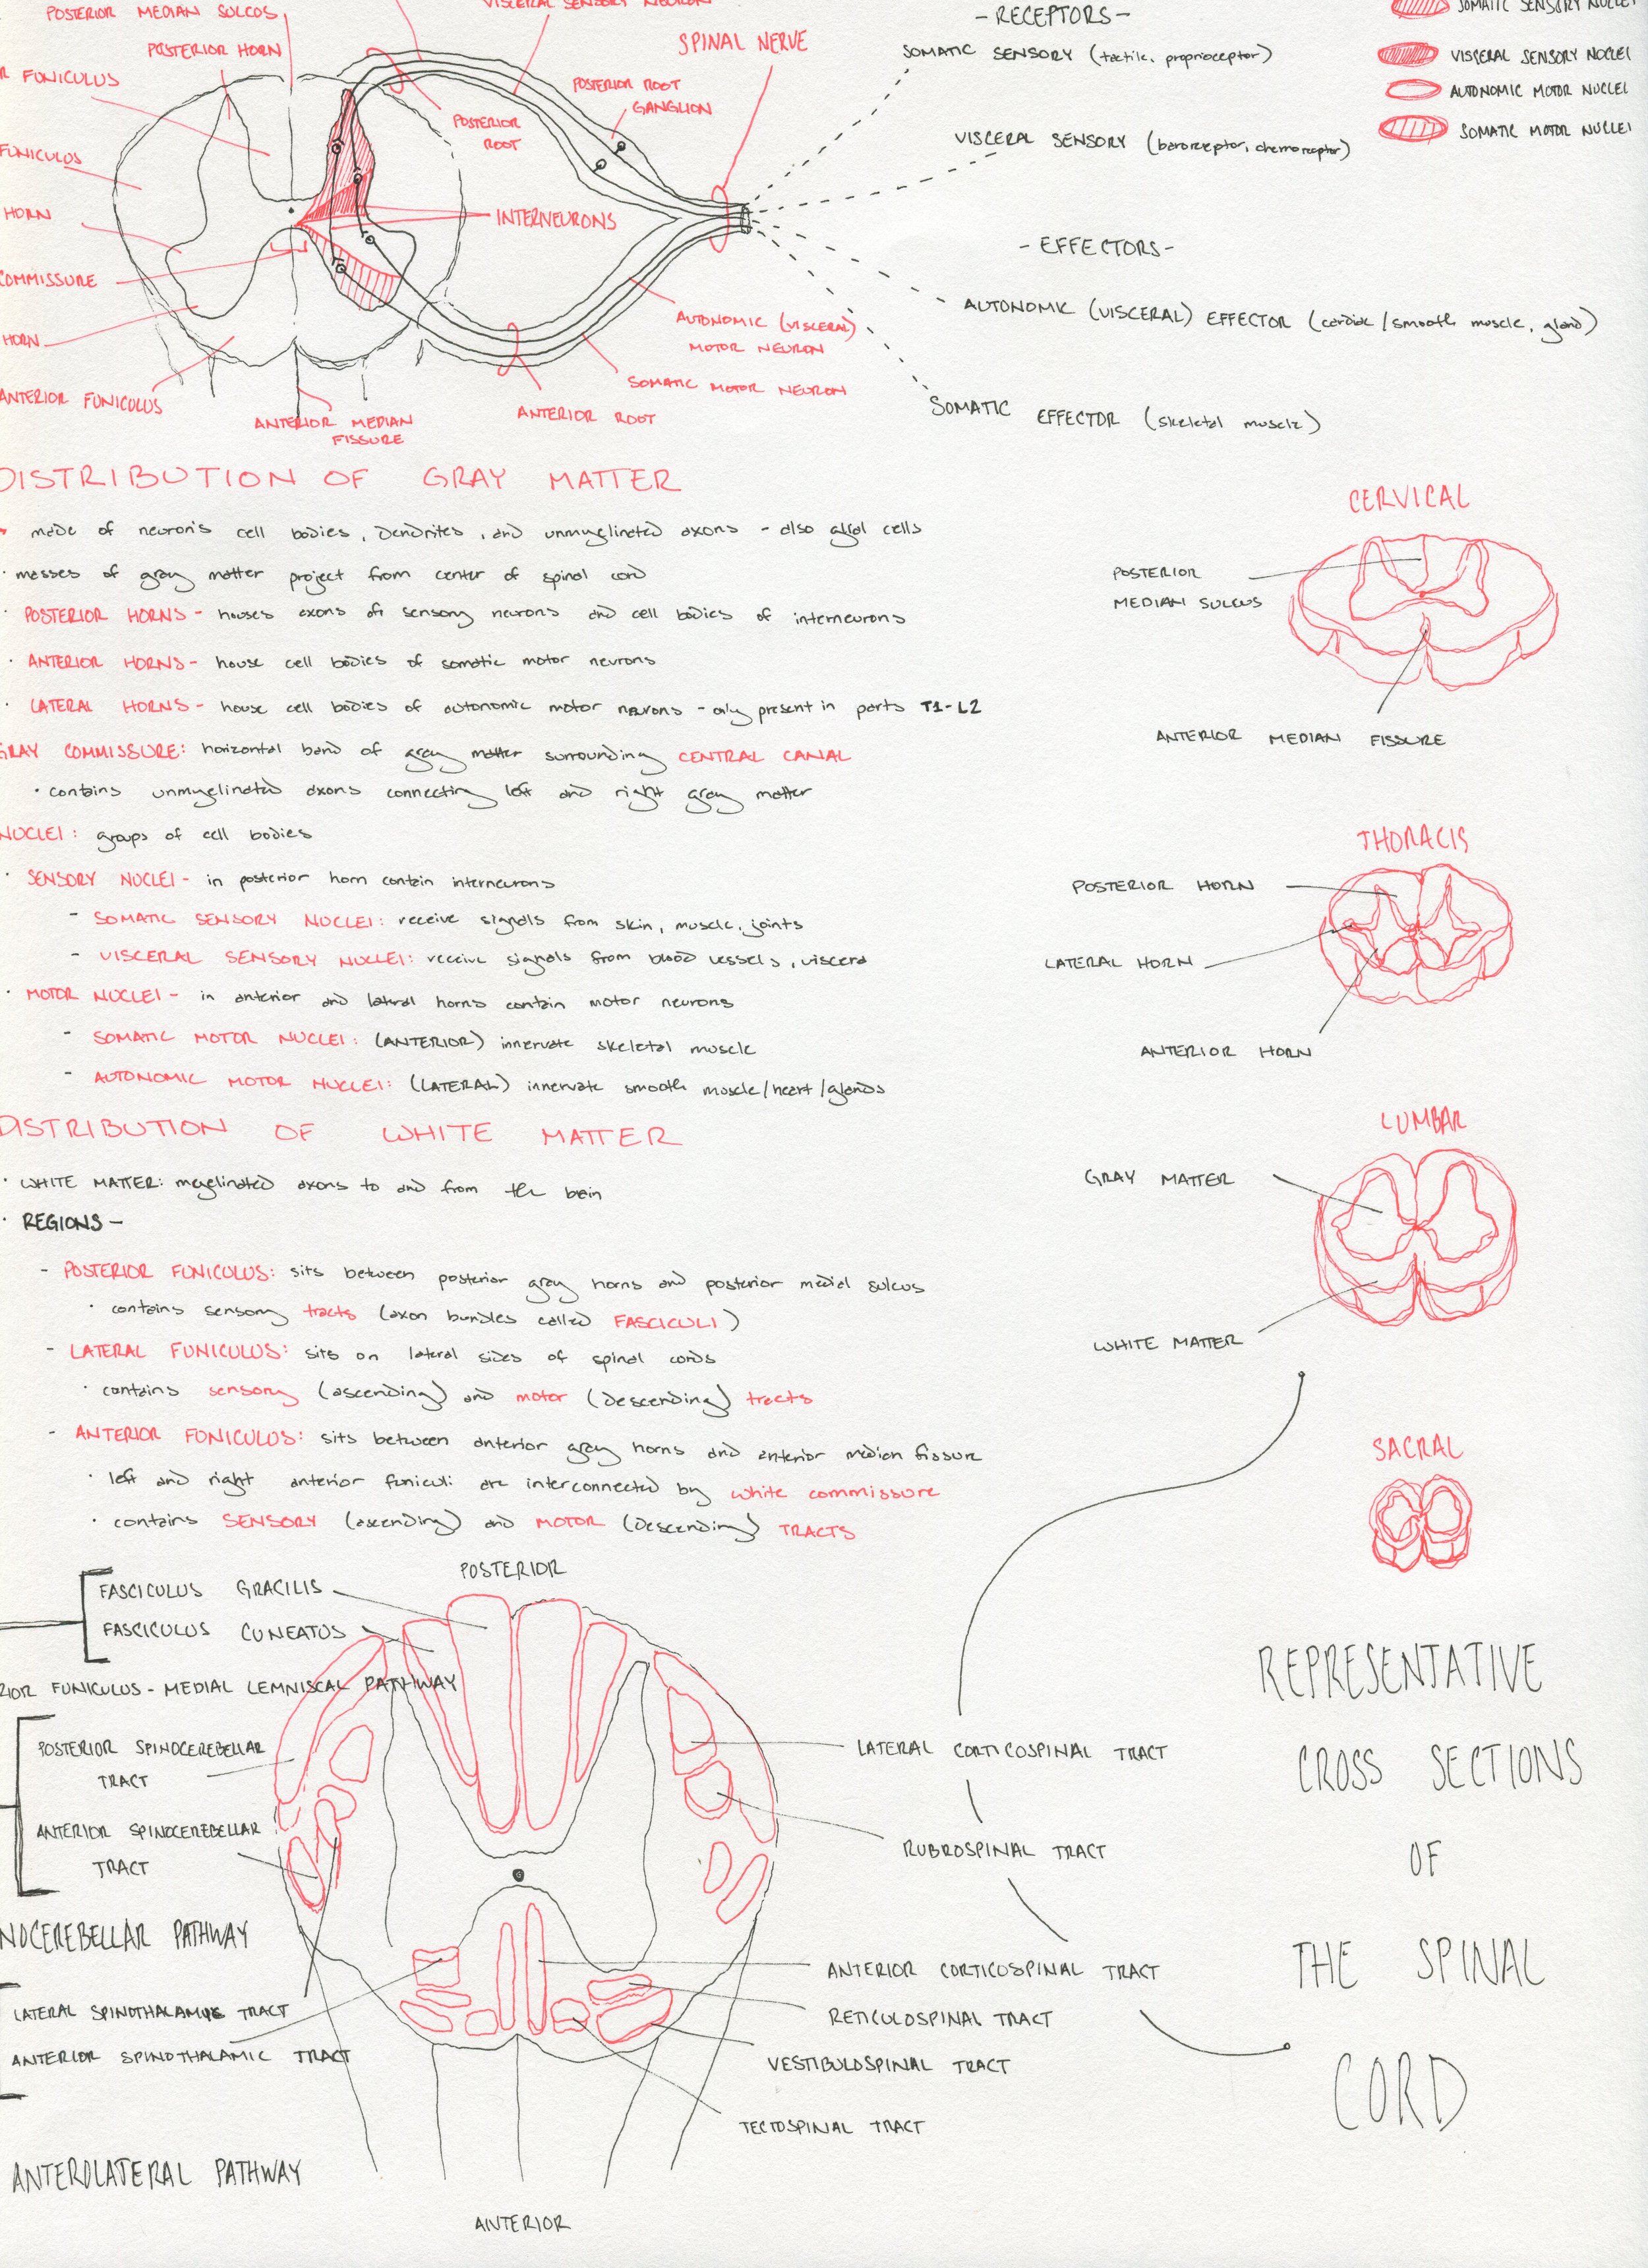 POSTERIOR MEDIAN SULCUS
VISCERAL SENSORY NEURON
POSTERIOR HORN
R FUNICULUS
FUNICULUS
HORN
COMMISSURE
HORN
ANTERIOR FUNICULUS
ANTERIOR MEDIAN
FISSURE
SPINAL NERVE
POSTERIOR ROOT
GANGLION
POSTERIOR
ROOT
INTERNEURONS
AUTONOMIC (VISCERAL)
MOTOR NEURON
SOMATIC MOTOR NEURON
ANTERIOR ROOT
- RECEPTORS -
SOMATIC SENSORY (tactile, proprioceptor)
VISCERAL SENSORY (baroreceptor, chemoreceptor)
- EFFECTORS -
AUTONOMIC (VISCERAL) EFFECTOR (cardiac / smooth muscle, gland)
SOMATIC EFFECTOR (skeletal muscle)
SOMATIC SENSORY NUCLEI
VISCERAL SENSORY NUCLEI
AUTONOMIC MOTOR NUCLEI
SOMATIC MOTOR NUCLEI
DISTRIBUTION OF GRAY MATTER
made of neuron's cell bodies, dendrites, and unmyelinated axons - also glial cells
· masses of gray matter project from center of spinal cord
· POSTERIOR HORNS - houses axons of sensory neurons and cell bodies of interneurons
· ANTERIOR HORNS - house cell bodies of somatic motor neurons
· LATERAL HORNS - house cell bodies of autonomic motor neurons - only present in parts T1-L2
GRAY COMMISSURE: horizontal band of gray matter surrounding CENTRAL CANAL
· contains unmyelinated axons connecting left and right gray matter
NUCLEI: groups of cell bodies
· SENSORY NUCLEI - in posterior horn contain interneurons
- SOMATIC SENSORY NUCLEI: receive signals from skin, muscle, joints
- VISCERAL SENSORY NUCLEI: receive signals from blood vessels, viscera
· MOTOR NUCLEI - in anterior and lateral horns contain motor neurons
- SOMATIC MOTOR NUCLEI: (ANTERIOR) innervate skeletal muscle
- AUTONOMIC MOTOR NUCLEI: (LATERAL) innervate smooth muscle/heart/glands
DISTRIBUTION OF WHITE MATTER
· WHITE MATTER: myelinated axons to and from the brain
· REGIONS -
- POSTERIOR FUNICULUS: sits between posterior gray horns and posterior medial sulcus
· contains sensory tracts (axon bundles called FASCICULI)
- LATERAL FUNICULUS: sits on lateral sides of spinal cords
· contains sensory (ascending) and motor (descending) tracts
- ANTERIOR FUNICULUS: sits between anterior gray horns and anterior median fissure
· left and right anterior funiculi are interconnected by white commissure
· contains SENSORY (ascending) and MOTOR (descending) TRACTS
CERVICAL
POSTERIOR
MEDIAN SULCUS
ANTERIOR MEDIAN FISSURE
THORACIS
POSTERIOR HORN
LATERAL HORN
ANTERIOR HORN
LUMBAR
GRAY MATTER
WHITE MATTER
SACRAL
REPRESENTATIVE
CROSS SECTIONS
OF
THE SPINAL
CORD
POSTERIOR
FASCICULUS GRACILIS
FASCICULUS CUNEATUS
RIOR FUNICULUS - MEDIAL LEMNISCAL PATHWAY
POSTERIOR SPINOCEREBELLAR
TRACT
ANTERIOR SPINOCEREBELLAR
TRACT
NOCEREBELLAR PATHWAY
LATERAL SPINOTHALAMIC TRACT
ANTERIOR SPINOTHALAMIC TRACT
ANTEROLATERAL PATHWAY
LATERAL CORTICOSPINAL TRACT
RUBROSPINAL TRACT
ANTERIOR CORTICOSPINAL TRACT
RETICULOSPINAL TRACT
VESTIBULOSPINAL TRACT
TECTOSPINAL TRACT
ANTERIOR